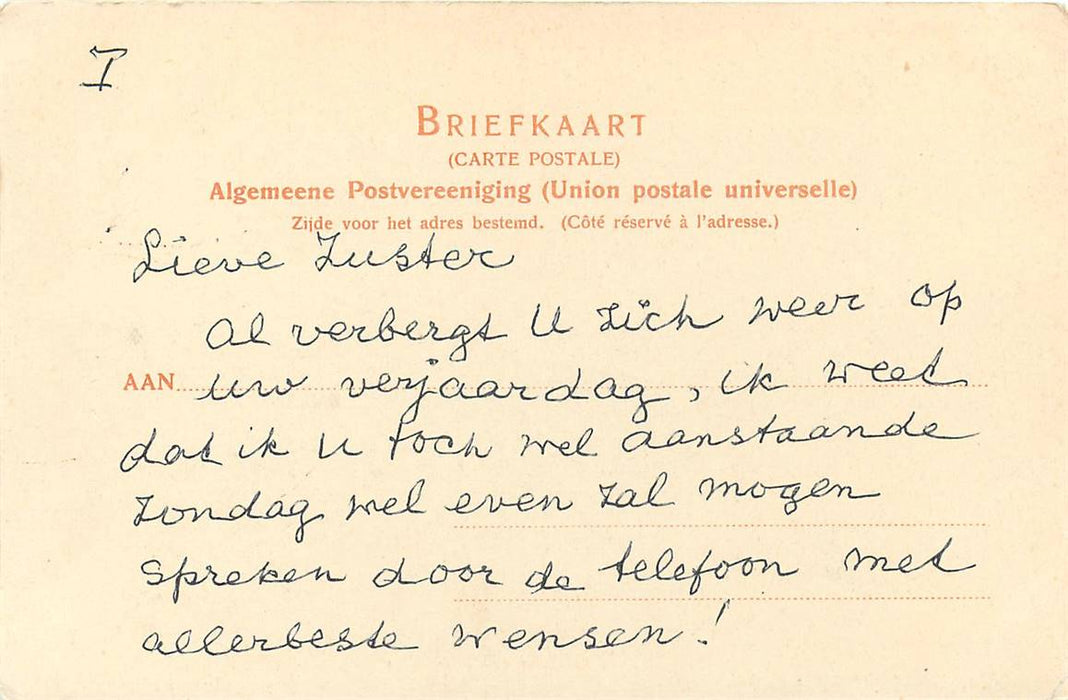 I
BRIEFKAART
(CARTE POSTALE)
Algemeene Postvereeniging (Union postale universelle)
Zijde voor het adres bestemd. (Côté réservé à l'adresse.)
Lieve Zuster
Al verbergt U zich weer op
AAN uw verjaardag, ik weet
dat ik U toch wel aanstaande
zondag wel even zal mogen
spreken door de telefoon met
allerbeste wensen!